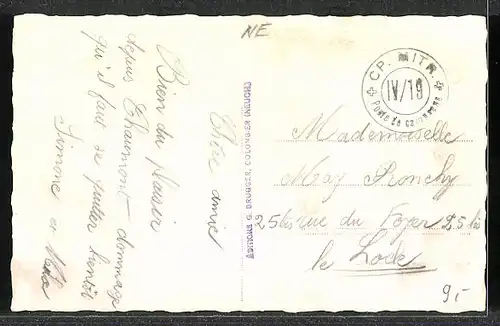 NE
Chère amie
Bien du plaisir
depuis Chaumont dommage
qu'il faut se quitter bientôt
Simone et
ÉDITIONS G. BRUGGER, COLOMBIER (NEUCH.)
CP. MITR.
IV/19
Poste de campagne
Mademoiselle
May Ronchy
25 bis rue du Foyer 25 bis
le Locle
9.-